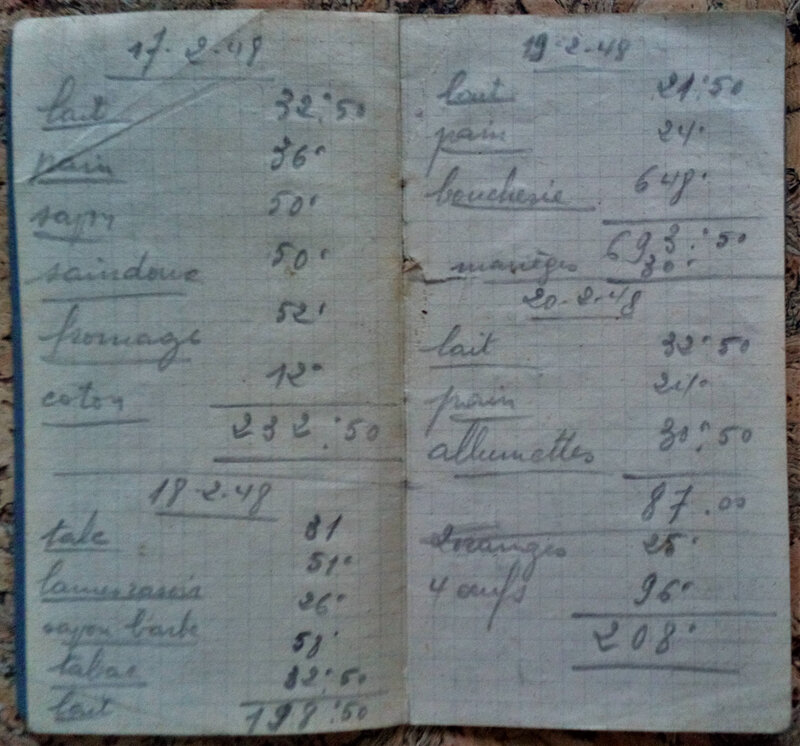 17-2-48
lait 32:50
pain 36'
50'
saindoux 50'
fromage 52'
coton 12'
232:50
18-2-48
talc 31
lames rasoir 51'
savon barbe 26'
tabac 58'
lait 32:50
198:50
19-2-48
lait 21:50
pain 24'
boucherie 648'
693:50
manèges 30'
20-2-48
lait 32:50
pain 24'
allumettes 30:50
87.00
2 oranges 25'
4 œufs 96'
208'